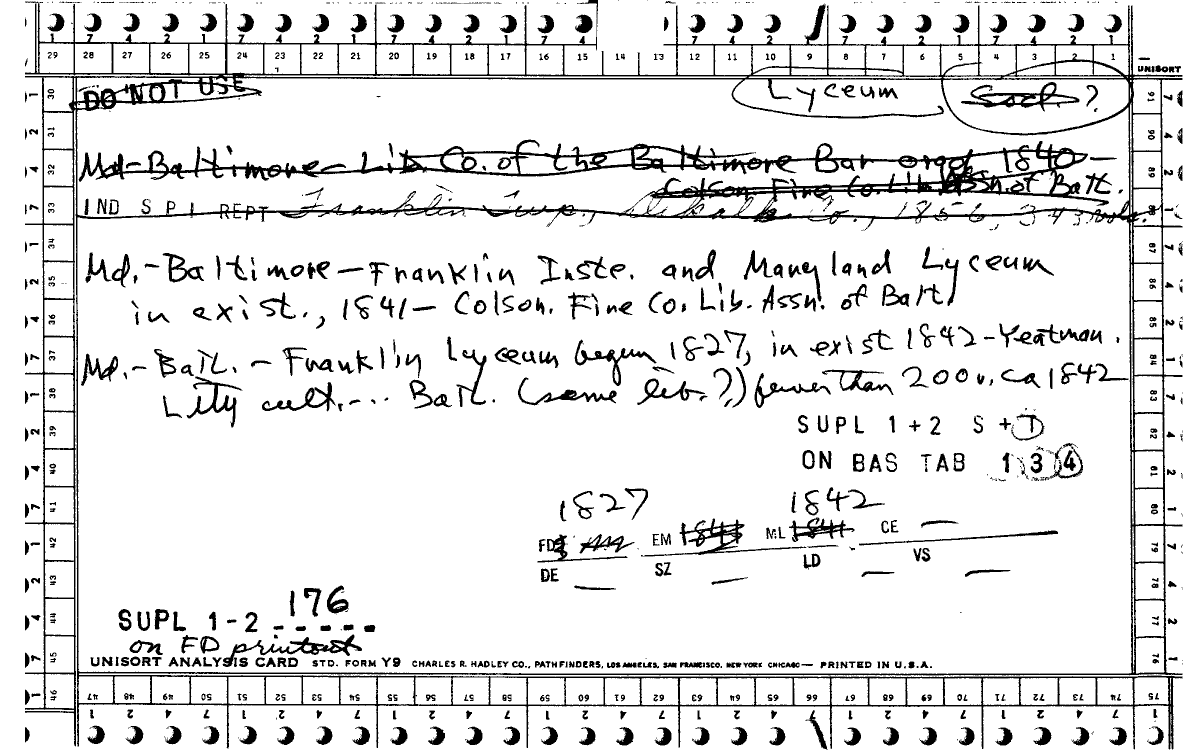 7 4 2 1 7 4 2 1 7 4 2 1 7 4 7 4 2 1 7 4 2 1 7 4 2 1
29 28 27 26 25 24 23 22 21 20 19 18 17 16 15 14 13 12 11 10 9 8 7 6 5 4 3 2 1
UNISORT
DO NOT USE
Lyceum Socl. ?
Md-Baltimore-Lib. Co. of the Baltimore Bar orgd 1840-
Colson Fine Co. Lib. Assn. of Balt.
IND S P I REPT Franklin Twp., Dekalb Co., 1856, 343 vols.
Md.-Baltimore-Franklin Inste. and Maryland Lyceum
in exist., 1841- Colson. Fine Co. Lib. Assn. of Balt.
Md.-Balt. - Franklin Lyceum begun 1827, in exist 1842-Yeatman.
Lity cult.... Balt. (some lib.?) fewer than 200 v. ca 1842
SUPL 1+2 S+T
ON BAS TAB 1 3 4
1827 1842
FD EM 1841 ML 1841 CE —
DE — SZ — LD — VS —
SUPL 1-2 176
on FD printout
UNISORT ANALYSIS CARD STD. FORM Y9 CHARLES R. HADLEY CO., PATHFINDERS, LOS ANGELES, SAN FRANCISCO, NEW YORK CHICAGO— PRINTED IN U.S.A.
47 48 49 50 51 52 53 54 55 56 57 58 59 60 61 62 63 64 65 66 67 68 69 70 71 72 73 74 75
1 2 4 7 1 2 4 7 1 2 4 7 1 2 4 7 1 2 4 7 1 2 4 7 1 2 4 7 1